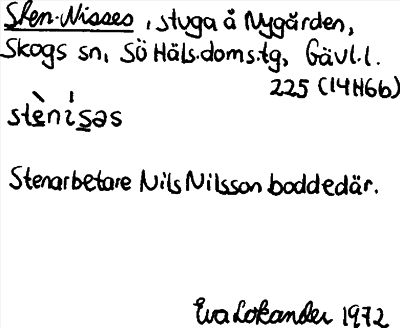 Sten-Nisses, stuga å Nygården,
Skogs sn, Sö Häls.doms.tg, Gävl.l.
225 (14H6b)
stè̱nís̱əs
Stenarbetare Nils Nilsson bodde där.
Eva Lokander 1972